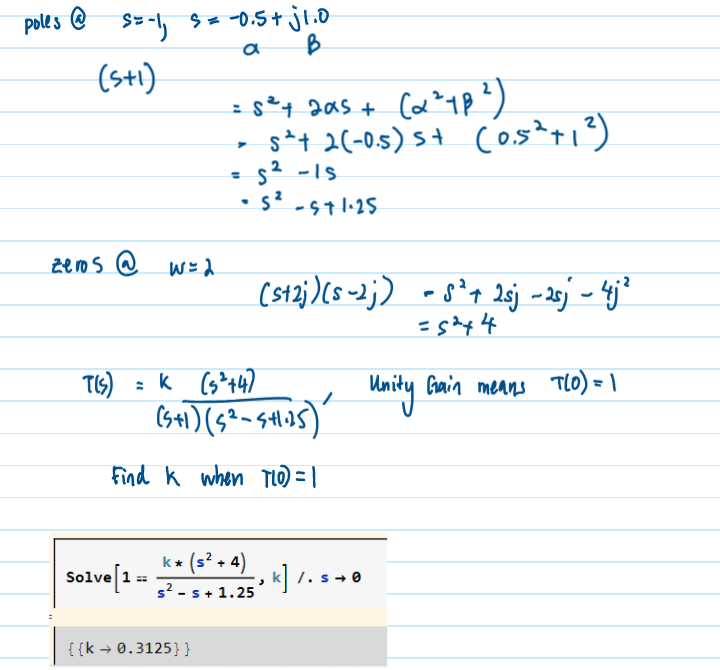 poles @ s=-1, s = -0.5 + j1.0
α β
(s+1)
= s² + 2αs + (α²+β²)
= s² + 2(-0.5)s + (0.5²+1²)
= s² -1s
= s² -s+1.25
zeros @ w=2
(s+2j)(s-2j) = s²+ 2sj -2sj - 4j²
= s²+4
T(s) = k (s²+4) / (s+1)(s²-s+1.25) , Unity Gain means T(0)=1
Find k when T(0)=1
Solve[1 == k * (s² + 4) / s² - s + 1.25, k] /. s → 0
=
{{k → 0.3125}}